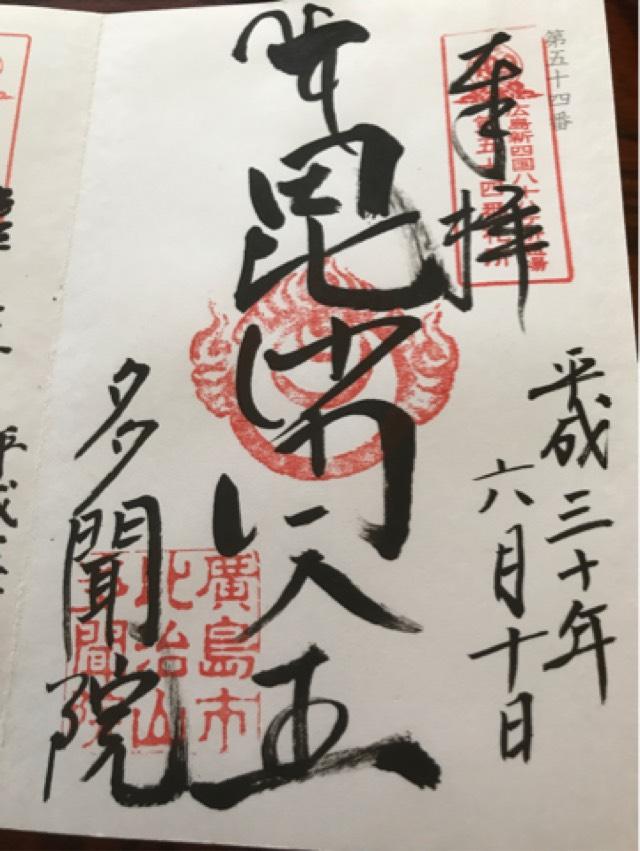 第五十四番
奉拝
広島新四国八十八ヶ所霊場
第五十四番札所
平成三十年
六月十日
毘沙門天王
多聞院
廣島市
比治山
多聞院
平成三